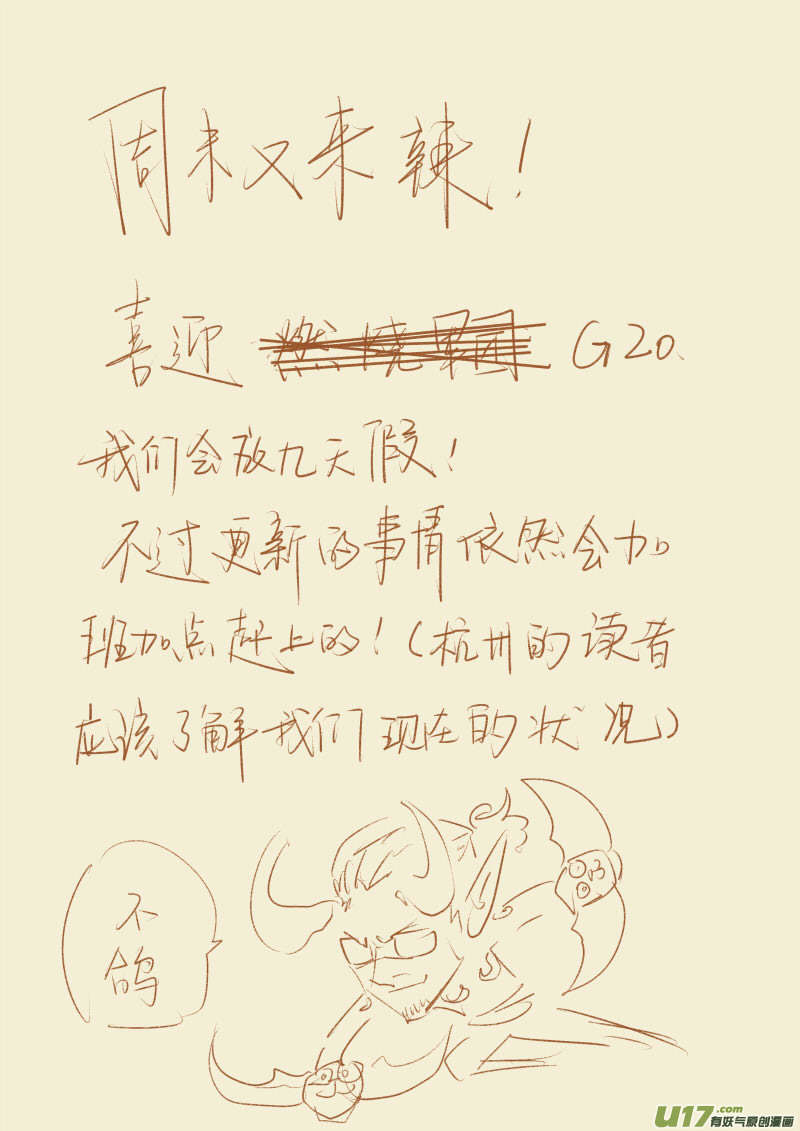 周末又来辣！
喜迎 燃烧军团 G20、
我们会放九天假！
不过更新的事情依然会加
班加点赶上的！（杭州的读者
应该了解我们现在的状况）
不
鸽
U17.com
有妖气原创漫画